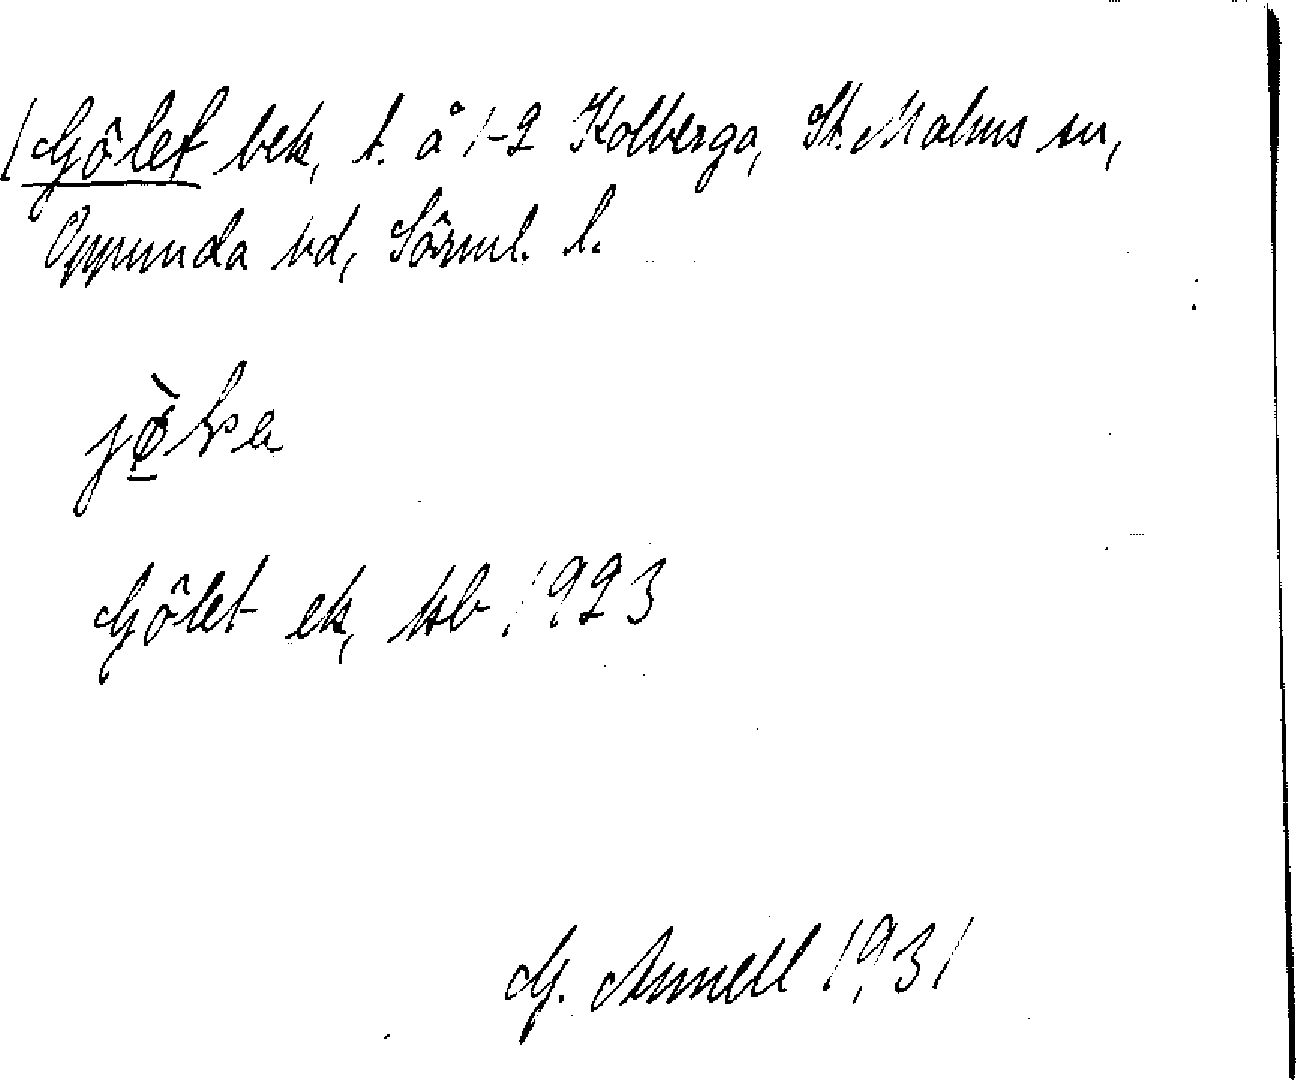 Gölet bek, t. å 1-2 Kolberga, St. Malms sn,
Oppunda hd, Sörml. l.
Gölet ek, kb 1923
G. Annell 1931